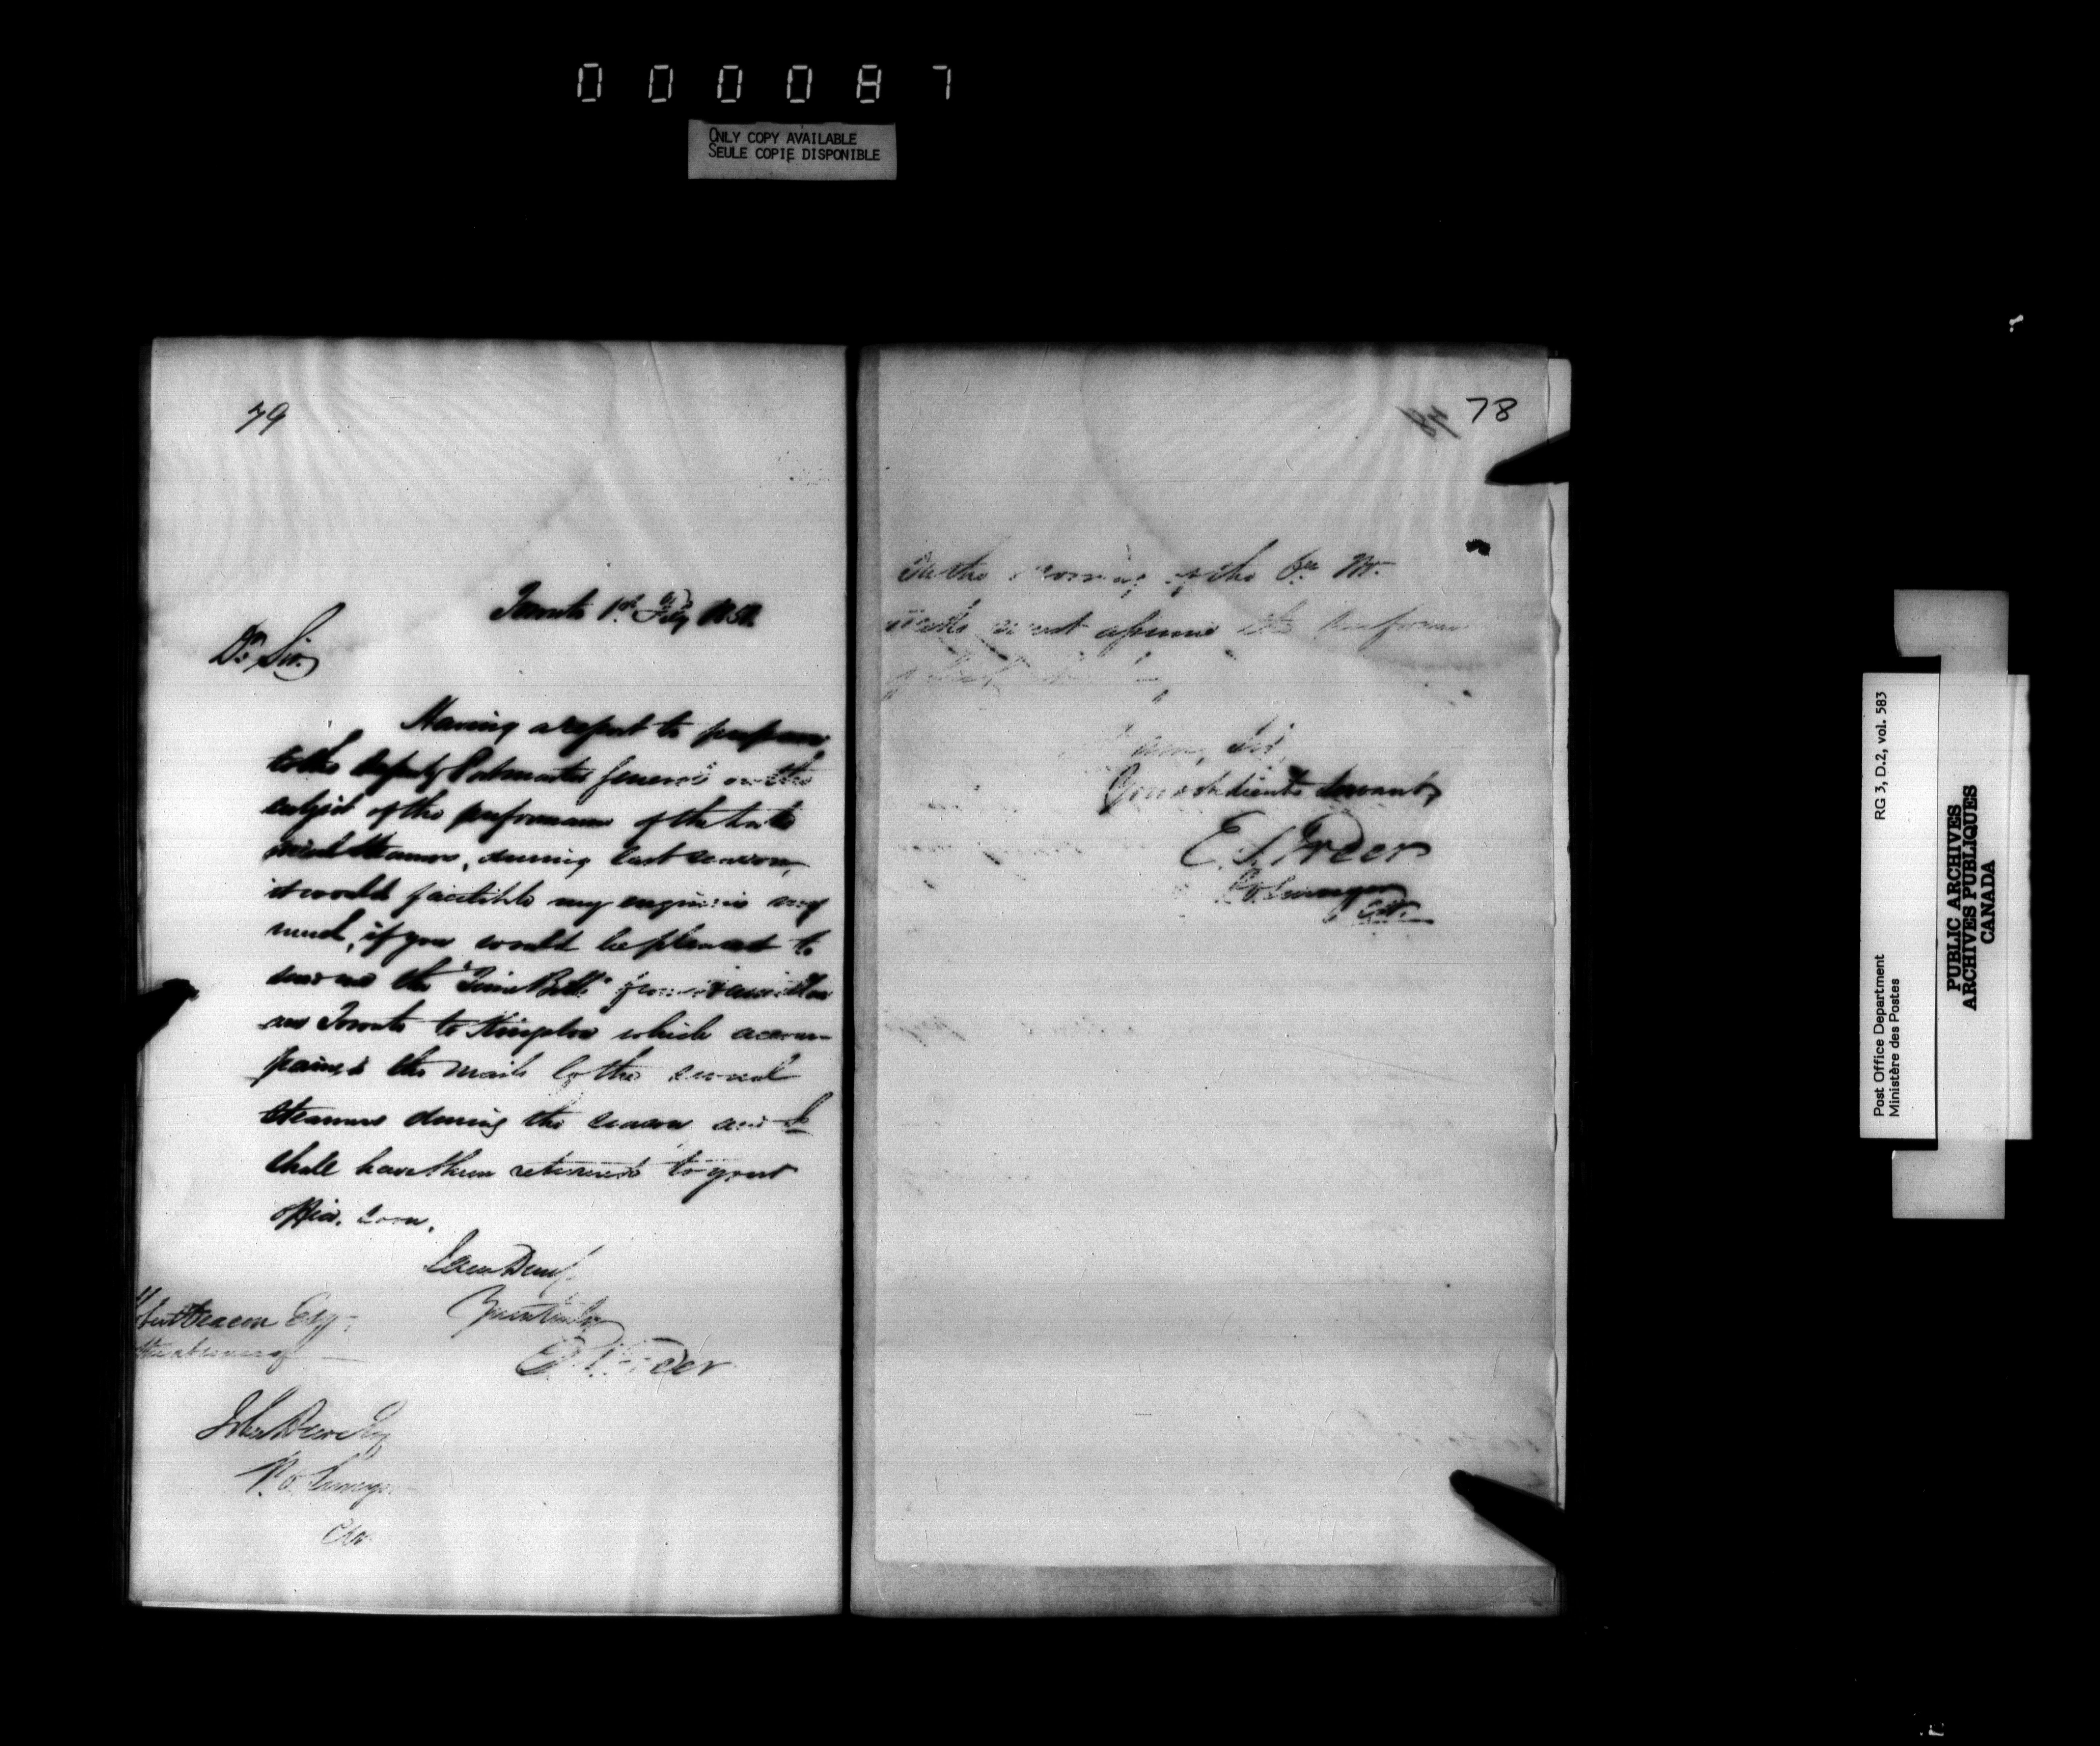 000087
ONLY COPY AVAILABLE
SEULE COPIE DISPONIBLE
79
Toronto 1st Feby
Dr Sir,
Having a report to prepare
to the Deputy Postmaster General on the
subject of the performance of the Lake
mail steamers, during last season,
it would facilitate my enquiries very
much, if you would be pleased to
send me the "Time Bills"
Toronto to Kingston which accom-
panied the mails by the several
steamers during the season and I
shall have them returned to your
office soon.
I am Dear Sir
Yours truly
E. S. Freer
Deacon Esq
John Dewe Esq
P. O. Surveyor
78
On the morning of the 6th
must assume the
I am, Sir,
Your obedient servant,
E. S. Freer
P. O. Surveyor
C.W.
Post Office Department
Ministère des Postes
RG 3, D.2, vol. 583
PUBLIC ARCHIVES
ARCHIVES PUBLIQUES
CANADA